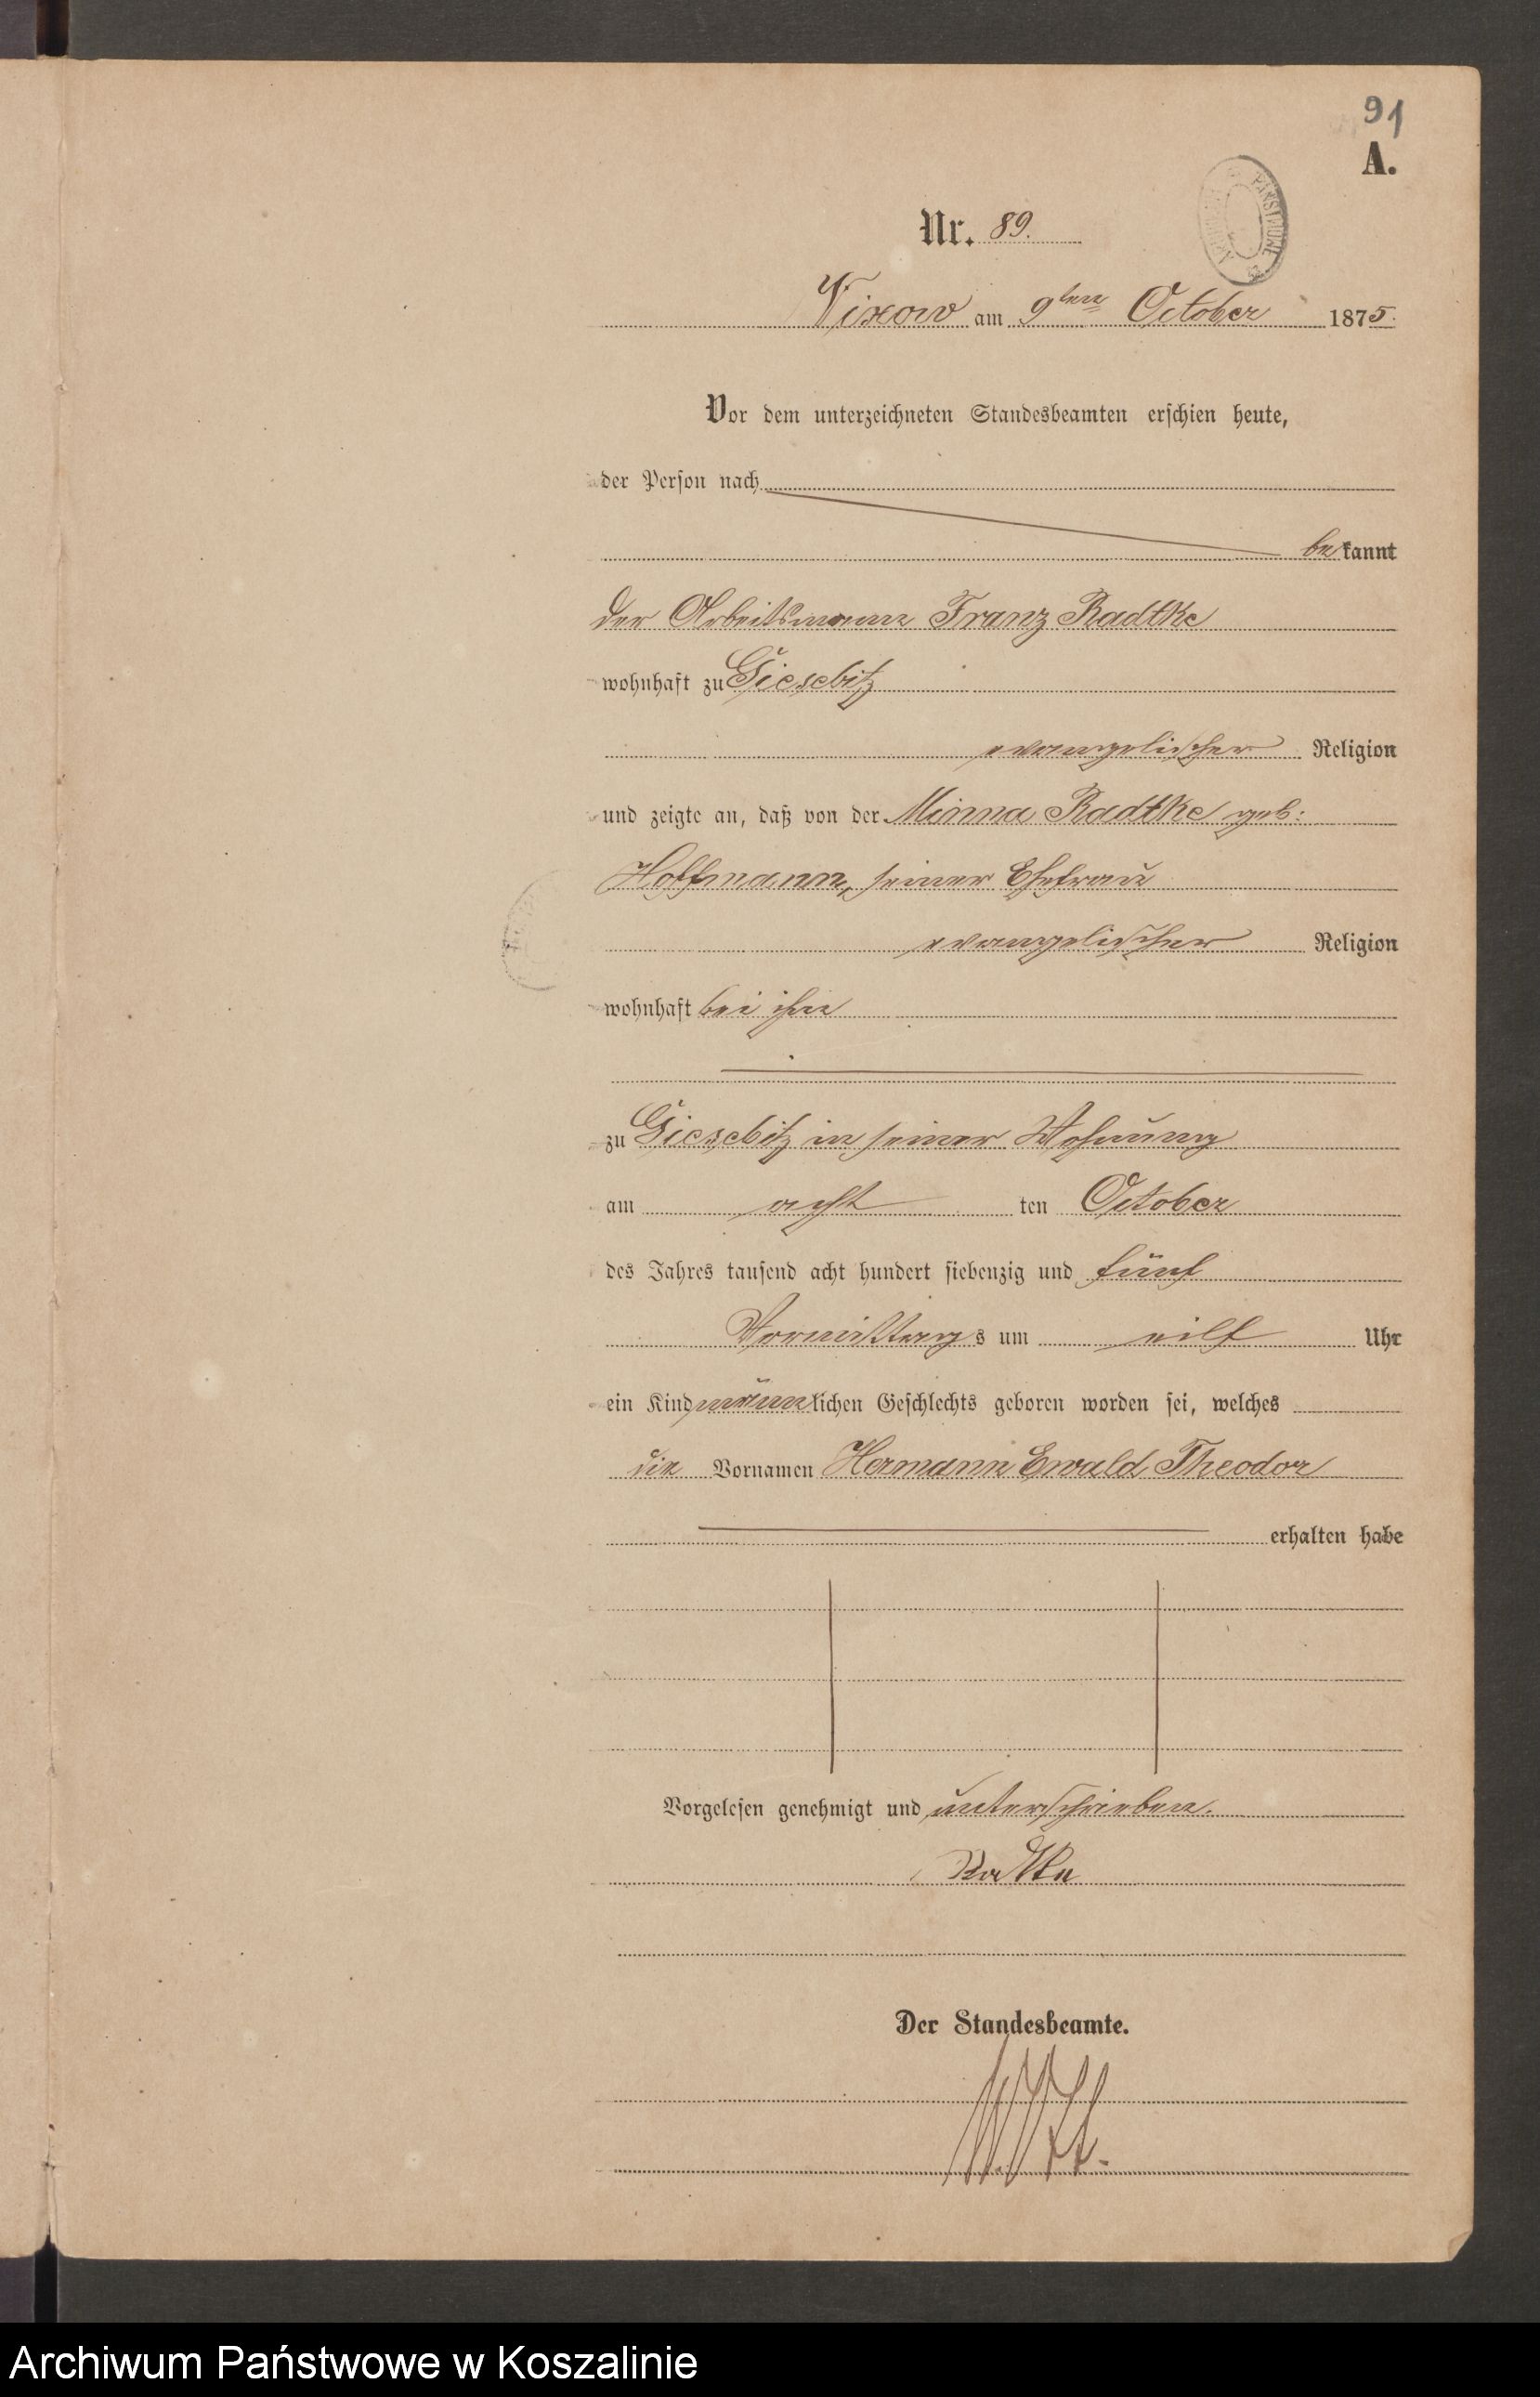 91
A.
Nr. 89.
Vixow am 9ten October 1875.
Vor dem unterzeichneten Standesbeamten erschien heute,
der Person nach
bekannt
der Arbeitsmann Franz Radtke
wohnhaft zu Giesebitz
evangelischer Religion
und zeigte an, daß von der Minna Radtke geb:
Hoffmann, seiner Ehefrau
evangelischer Religion
wohnhaft bei ihm
zu Giesebitz in seiner Wohnung
am acht ten October
des Jahres tausend acht hundert siebenzig und fünf
Vormittags um eilf Uhr
ein Kind männlichen Geschlechts geboren worden sei, welches
die Vornamen Hermann Ewald Theodor
erhalten habe
Vorgelesen genehmigt und unterschrieben.
Radtke
Der Standesbeamte.
Archiwum Państwowe w Koszalinie